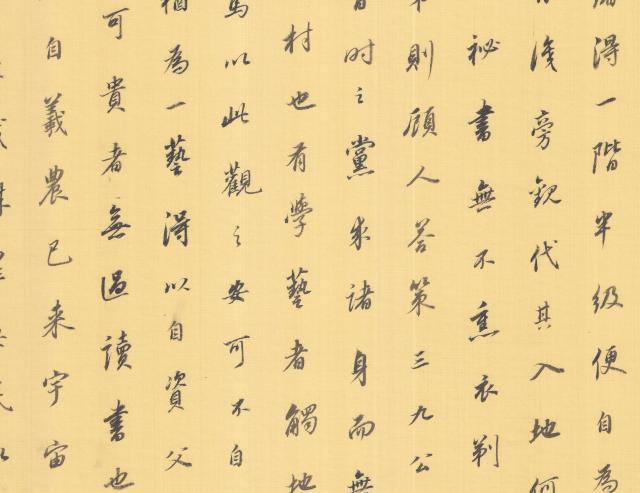 得一階半級便自為
後旁觀代其入地何
秘書無不熏衣剃
則顧人答策三九公
時之黨求諸身而無
材也有學藝者觸地
以此觀之安可不自
猶為一藝得以自資父
可貴者無過讀書也
自羲農已来宇宙